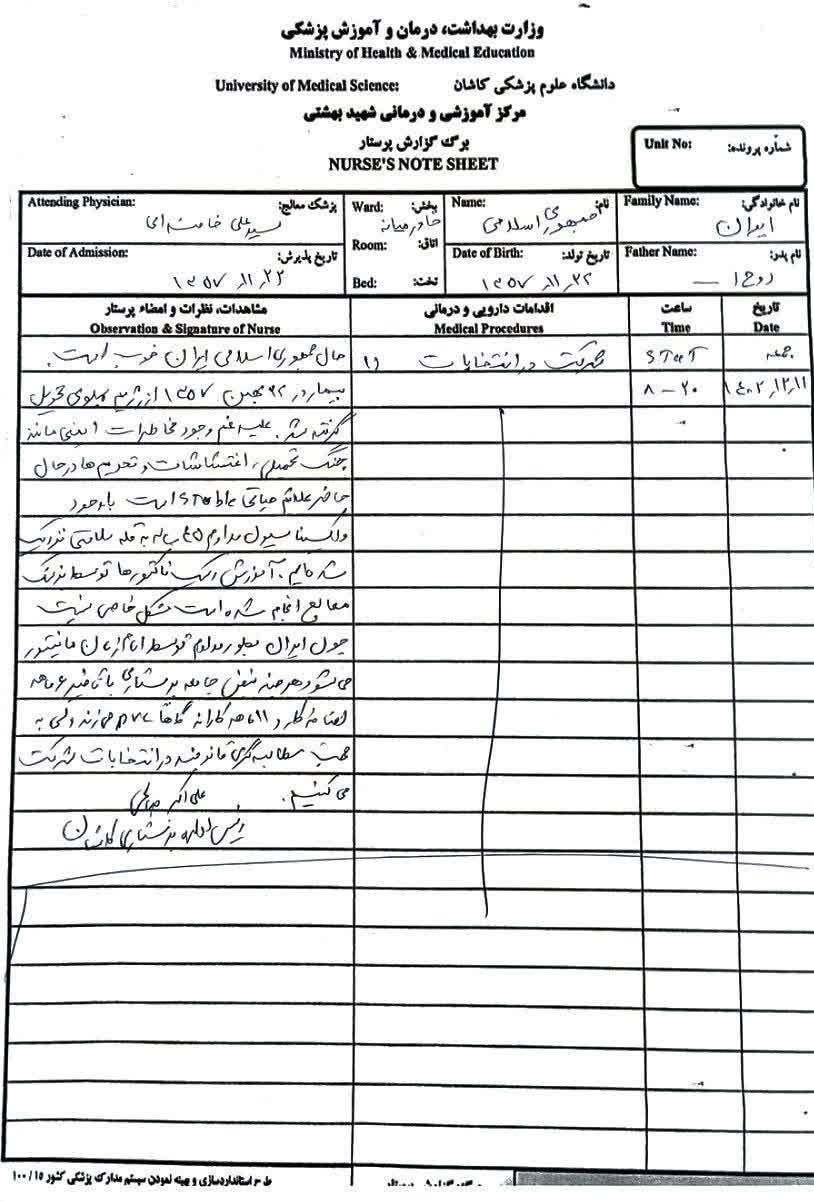 وزارت بهداشت، درمان و آموزش پزشکی
Ministry of Health & Medical Education
دانشگاه علوم پزشکی کاشان University of Medical Science:
مرکز آموزشی و درمانی شهید بهشتی
برگ گزارش پرستار
NURSE'S NOTE SHEET
شماره پرونده: Unit No:
نام خانوادگی: Family Name:
ایران
نام: Name:
جمهوری اسلامی
بخش: Ward:
خاورمیانه
اتاق: Room:
تخت: Bed:
پزشک معالج: Attending Physician:
سید علی خامنه‌ای
نام پدر: Father Name:
روح ا
تاریخ تولد: Date of Birth:
۱۳۵۷٫۱۱٫۲۲
تاریخ پذیرش: Date of Admission:
۱۳۵۷٫۱۱٫۲۲
تاریخ
Date
ساعت
Time
اقدامات دارویی و درمانی
Medical Procedures
مشاهدات، نظرات و امضاء پرستار
Observation & Signature of Nurse
جمعه
STAT
۱) شرکت در انتخابات
حال جمهوری اسلامی ایران خوب است.
۱۴۰۲٫۱۲٫۱۱
۸ – ۲۰
بیمار در ۲۲ بهمن ۱۳۵۷ از رژیم پهلوی تحویل
گرفته شد. علیرغم وجود مخاطرات ایمنی مانند
جنگ تحمیلی، اغتشاشات و تحریم ها در حال
حاضر علائم حیاتی stable است با وجود
واکسیناسیون مداوم ۴۵ ساله به قله سلامتی نزدیک
شده ایم. آموزش ریسک فاکتورها توسط پزشک
معالج انجام شده است مشکل خاصی نیست
چون ایران بطور مداوم توسط امام زمان مانیتور
میشود هر چند نبض جامعه پرستاری با تأخیر ۶ ماهه
اضافه کار و ۱۱ ماهه کارانه گاهاً PVC می زند ولی به
جهت مطالبه گری قانونمند در انتخابات شرکت
می کنیم. علی اکبر
رئیس اداره پرستاری کاشان
طرح استانداردسازی و بهینه نمودن سیستم مدارک پزشکی کشور ۱۵ / ۱۰۰